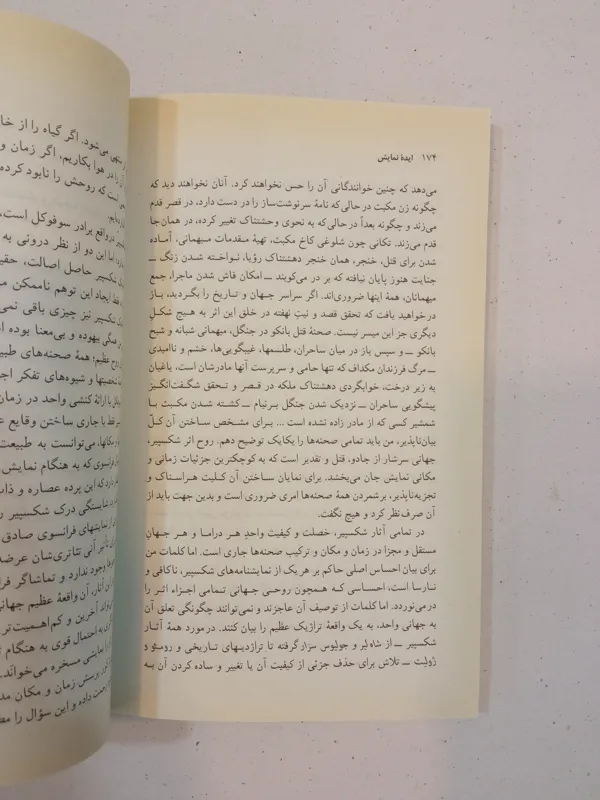 ۱۷۴ ایدهٔ نمایش
می‌دهد که چنین خوانندگانی آن را حس نخواهند کرد. آنان نخواهند دید که
چگونه زن مکبث در حالی‌که نامهٔ سرنوشت‌ساز را در دست دارد، در قصر قدم
می‌زند و چگونه بعداً در حالی‌که به نحوی وحشتناک تغییر کرده، در همان‌جا
قدم می‌زند. تکانی چون شلوغی کاخ مکبث، تهیهٔ مقدمات میهمانی، آماده
شدن برای قتل، خنجر، همان خنجر دهشتناک رؤیا، نواخته شدن زنگ ــ
جنایت هنوز پایان نیافته که بر در می‌کوبند ــ امکان فاش شدن ماجرا، جمع
میهمانان، همهٔ اینها ضروری‌اند. اگر سراسر جهان و تاریخ را بگردید، باز
درخواهید یافت که تحقق قصد و نیتِ نهفته در خلق این اثر به هیچ شکلِ
دیگری جز این میسر نیست. صحنهٔ قتل بانکو در جنگل، میهمانی شبانه و شبح
بانکو ــ و سپس باز در میان ساحران، طلسمها، غیبگویی‌ها، خشم و ناامیدی
ــ مرگ فرزندان مکداف که تنها حامی و سرپرست آنها مادرشان است. یاغیان
به زیر درخت، خوابگردی دهشتناک ملکه در قصر و تحقق شگفت‌انگیز
پیشگویی ساحران ــ نزدیک شدن جنگل برنیام ــ کشته شدن مکبث با
شمشیر کسی که از مادر زاده نشده است ... برای مشخص ساختن آن کلّ
بیان‌ناپذیر، من باید تمامی صحنه‌ها را یکایک توضیح دهم. روح اثر شکسپیر،
جهانی سرشار از جادو، قتل و تقدیر است که به کوچکترین جزئیات زمانی و
مکانی نمایش جان می‌بخشد. برای نمایان ساختن آن کلیت هراسناک و
تجزیه‌ناپذیر، برشمردن همهٔ صحنه‌ها امری ضروری است و بدین جهت باید از
آن صرف‌نظر کرد و هیچ نگفت.
در تمامی آثار شکسپیر، خصلت و کیفیت واحدِ هر دراما و هر جهانِ
مستقل و مجزا در زمان و مکان و ترکیب صحنه‌ها جاری است. اما کلمات من
برای بیان احساس اصلی حاکم بر هر یک از نمایشنامه‌های شکسپیر، ناکافی و
نارسا است، احساسی که همچون روحی جهانی تمامی اجزاء اثر را
درمی‌نوردد. اما کلمات از توصیف آن عاجزند و نمی‌توانند چگونگی تعلق آن
به جهانی واحد، به یک واقعهٔ تراژیک عظیم را بیان کنند. در مورد همهٔ آثار
شکسپیر ــ از شاه‌لیر و جولیوس سزار گرفته تا تراژدیهای تاریخی و رومئو و
ژولیت ــ تلاش برای حذف جزئی از کیفیت آن یا تغییر و ساده کردن آن به
می‌شود. اگر گیاه را از
را در هوا بکاریم، اگر زمان و
است که روحش را نابود کرده
درواقع برادر سوفوکل است،
اما این دو از نظر درونی به
شکسپیر حاصل اصالت،
ایجاد این توهم ناممکن
شکسپیر نیز چیزی باقی
بیهوده و بی‌معنا بوده
عظیم؛ همهٔ صحنه‌های
و شیوه‌های تفکر
با ارائهٔ کنشی واحد در
با جاری ساختن وقایع
می‌توانست به طبیعت
فرانسوی که به هنگام نمایش
که این پرده عصاره و
شایستگی درک شکسپیر
نمایشهای فرانسوی صادق
تأثیر آنی تئاتری‌شان
وجود ندارد و تماشاگر
آثار، آن واقعهٔ عظیم جهانی
آخرین و کم‌اهمیت‌تر
به احتمال قوی به هنگام
نمایشی مسخره می‌خوانَد.
پرسش زمان و مکان
داده و این سؤال را